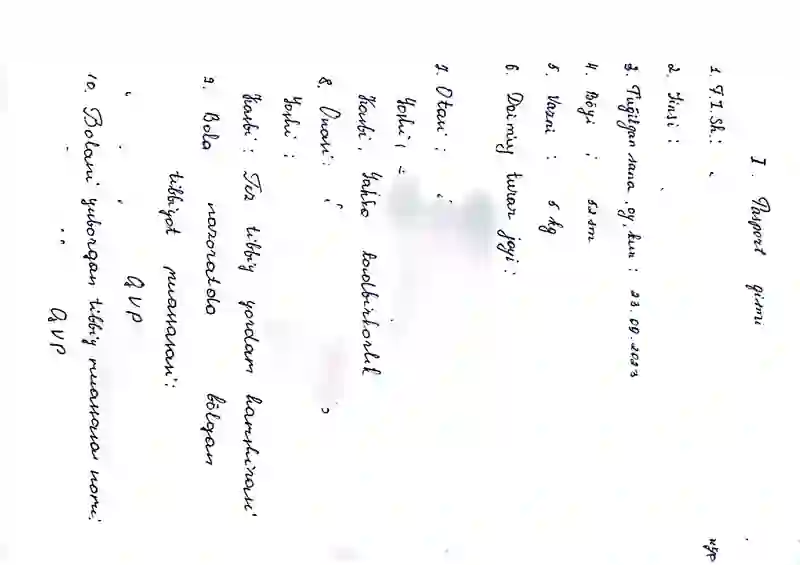 I. Pasport qismi
1. F.I.Sh.:
2. Jinsi:
3. Tug'ilgan sana, oy, kun: 23.09.2023
4. Bo'yi: 52 sm
5. Vazni: 5 kg
6. Doimiy turar joyi:
7. Otasi:
Yoshi: -
Kasbi: Yakka tadbirkorlik
8. Onasi:
Yoshi:
Kasbi: Tez tibbiy yordam hamshirasi
9. Bola nazoratda bo'lgan
tibbiyot muassasasi:
QVP
10. Bolani yuborgan tibbiy muassasa nomi:
QVP